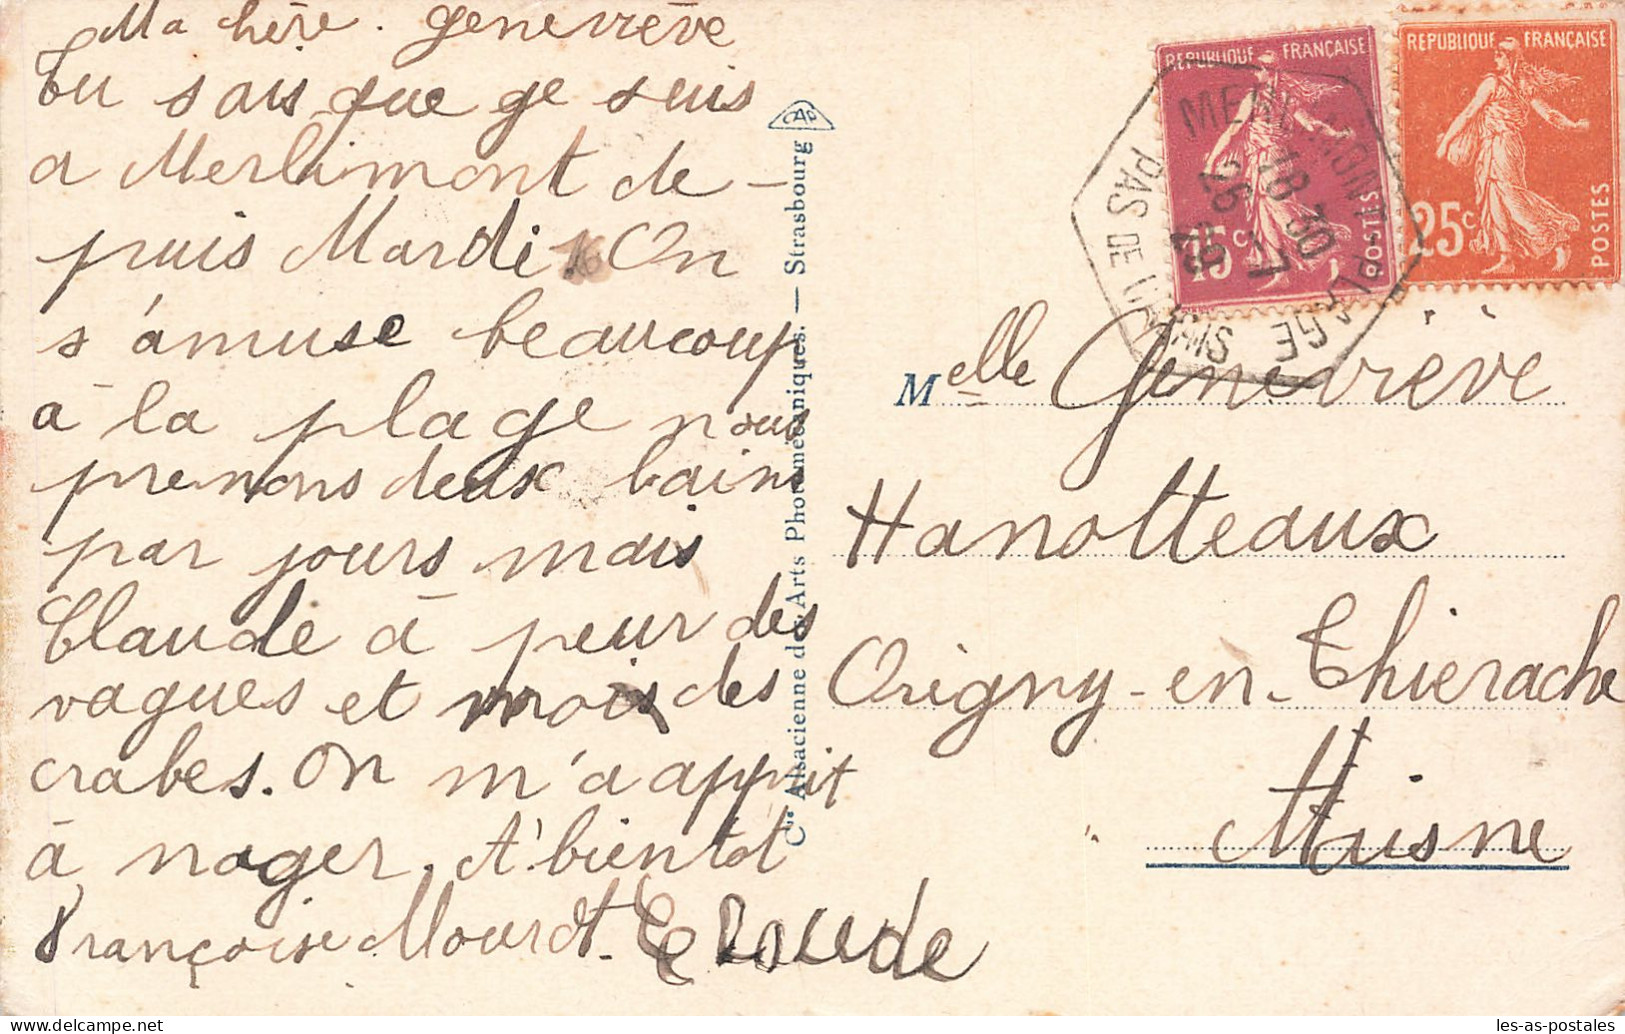 Ma chère. geneviève
Tu sais que ge suis
a Merlimont de -
puis Mardi. On
s'amuse beaucoup
à la plage nous
prenons deux bains
par jours mais
Claude à peur des
vagues et mois des
crabes. On m'a apprit
à nager. A'bientot
Françoise Mourot.
Claude
CAP
Cie Alsacienne des Arts Photomécaniques. — Strasbourg
REPUBLIQUE FRANÇAISE
15c
POSTES
REPUBLIQUE FRANÇAISE
25c
POSTES
MERLIMONT PLAGE
18 30
26 7
PAS DE CALAIS
Melle Geneviève
Hanotteaux
Origny-en-Thierache
Aisne
les-as-postales
delcampe.net